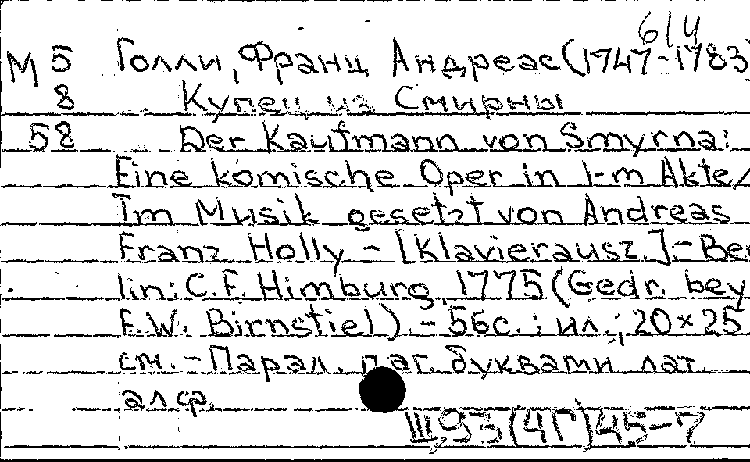 614
М 5 Голли, Франц Андреас (1747-1783)
8 Купец из Смирны
58 Der Kaufmann von Smyrna:
Eine komische Oper in 1-m Akte/
Im Musik gesetzt von Andreas
Franz Holly - [Klavierausz.].- Ber
lin: C.F. Himburg, 1775 (Gedr. bey
F.W. Birnstiel). - 56с.: ил.; 20×25
см. - Парал. паг. буквами лат.
алф.
Ш,93(4Г)45-7